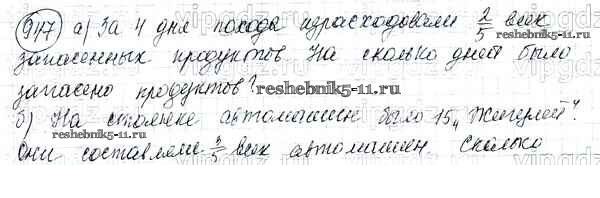 947 а) За 4 дня похода израсходовали 2/5 всех
запасенных продуктов На сколько дней было
запасено продуктов?
reshebnik5-11.ru
б) На стоянке автомашин было 15 „Жигулей".
reshebnik5-11.ru
Они составляли 3/5 всех автомашин. Сколько